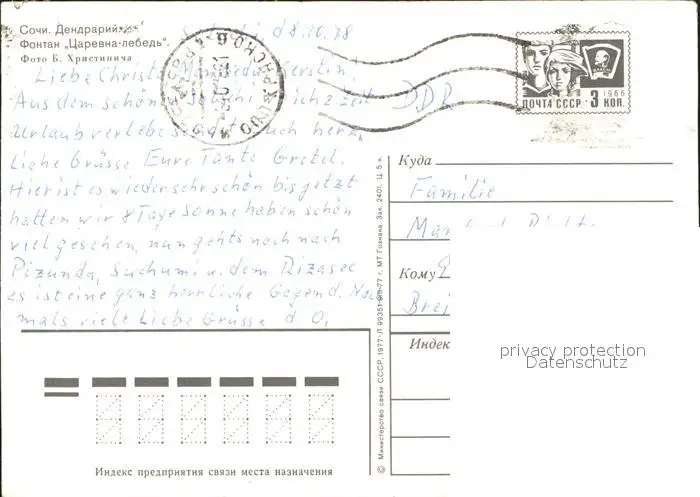 Сочи. Дендрарий.
Фонтан „Царевна-лебедь“
Фото Б. Христинича
d 8.10.78
Liebe Christa Kerstin,
Aus dem schönen z zeit
Urlaub verlebe euch herz.
liche Grüsse Eure Tante Gretel.
Hier ist es wieder sehr schön bis jetzt
hatten wir 8 Tage Sonne haben schön
viel gesehen, nun gehts noch nach
Pizunda, Suchumi u. dem Rizasee
es ist eine ganz herrliche Gegend. Noch
mals viele Liebe Grüsse d O,
DDR
ПОЧТА СССР 3 КОП.
1966
Куда
Familie
Кому
Индек
privacy protection
Datenschutz
© Министерство связи СССР, 1977. Л 99351 МТ Гознака. Зак. 2401. Ц. 5 к.
Индекс предприятия связи места назначения